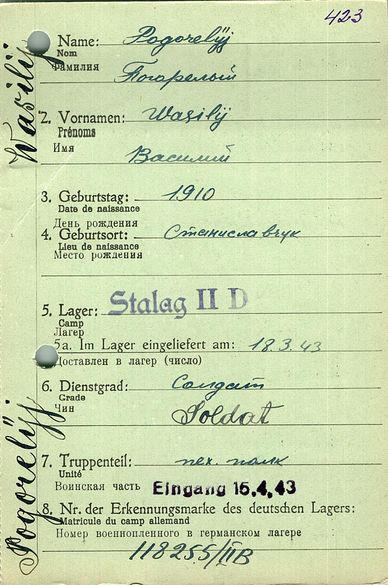 423
Name: Pogorelÿj
Nom
Фамилия Погорелый
2. Vornamen: Wasilÿ
Prénoms
Имя Василий
3. Geburtstag: 1910
Date de naissance
День рождения
4. Geburtsort: Станиславчук
Lieu de naissance
Место рождения
5. Lager: Stalag II D
Camp
Лагерь
5a. Im Lager eingeliefert am: 18.3.43
Доставлен в лагер (число)
6. Dienstgrad: Солдат
Grade
Чин Soldat
7. Truppenteil: пех. полк
Unité
Воинская часть Eingang 15.4.43
8. Nr. der Erkennungsmarke des deutschen Lagers:
Matricule du camp allemand
Номер военнопленного в германском лагере
118255/IIB
Pogorelÿj Wasilij